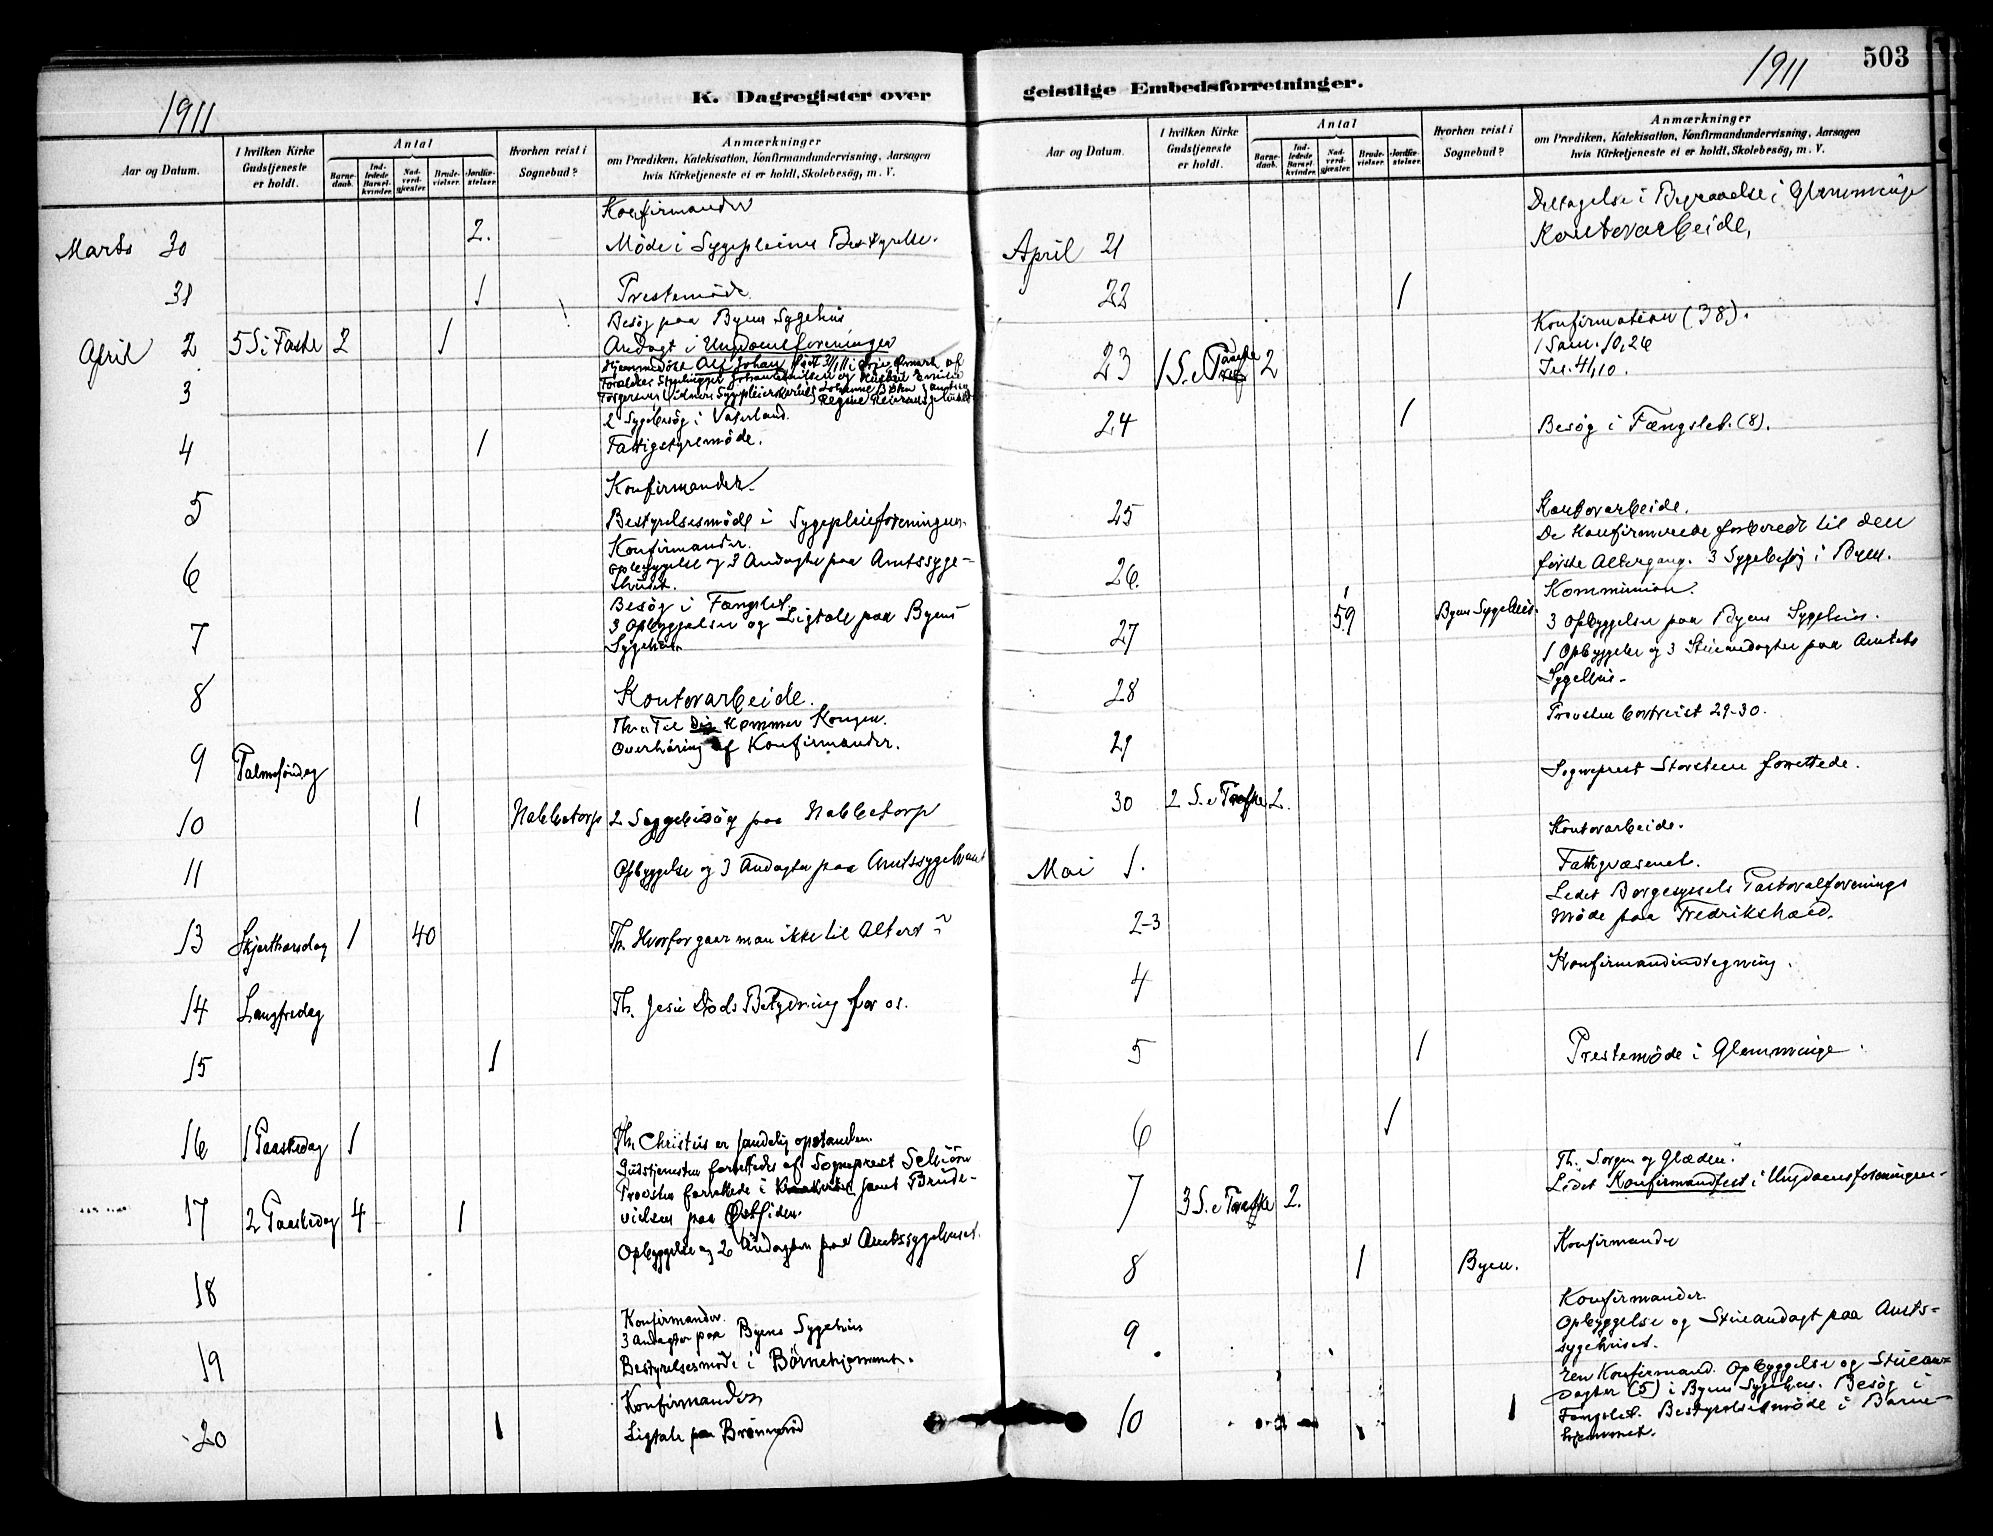 503
1911
1911
K. Dagregister over geistlige Embedsforretninger.
Aar og Datum.
I hvilken Kirke Gudstjeneste er holdt.
Antal
Barnedaab.
Indledede Barselkvinder.
Nadverdgjester.
Brudevielser.
Jordfæstelser.
Hvorhen reist i Sognebud?
Anmærkninger
om Prædiken, Katekisation, Konfirmandundervisning, Aarsagen
hvis Kirketjeneste ei er holdt, Skolebesøg, m. V.
Konfirmander
Marts 30 2. Møde i Sygepleiens Bestyrelse.
31 1 Prestemøde
Besøg paa Byens Sygehus
April 2 5 S i Faste 2 1 Andagt i Ungdomsforeningen
Hjemmedøbt Alf Johan født
3
2 Sygebesøg i Vaterland.
4 1 Fattigstyremøde.
Konfirmander.
5 Bestyrelsesmøde i Sygepleieforeningen.
Konfirmander.
6 Opbyggelse og 3 Andagter paa Amtssyge-
huset.
Besøg i Fængslet.
7 3 Opbyggelser og Ligtale paa Byens
Sygehus.
8 Kontorarbeide.
Th. Til Dig kommer Kongen.
9 Palmesøndag Overhøring af Konfirmander.
10 1 Nabbetorp 2 Sygebesøg paa Nabbetorp
11 Opbyggelse og 3 Andagter paa Amtssygehuset
13 Skjærthorsdag 1 40 Th. Hvorfor gaar man ikke til Alters?
14 Langfredag Th. Jesu Døds Betydning for os.
15 1
16 1 Paaskedag 1 Th. Christus er sandelig opstanden.
Gudstjenesten forrettedes af Sogneprest Schiörn
Provsten forrettede i samt Brude-
17 2 Paaskedag 4 1 vielsen paa Østsiden.
Opbyggelse og 2 Andagter paa Amtssygehuset.
18
Konfirmander.
3 Andagter paa Byens Sygehus
19 Bestyrelsesmøde i Börnehjemmet.
Konfirmander
20 1 Ligtale paa Brønnerød
Aar og Datum.
I hvilken Kirke Gudstjeneste er holdt.
Antal
Barnedaab.
Indledede Barselkvinder.
Nadverdgjester.
Brudevielser.
Jordfæstelser.
Hvorhen reist i Sognebud?
Anmærkninger
om Prædiken, Katekisation, Konfirmandundervisning, Aarsagen
hvis Kirketjeneste ei er holdt, Skolebesøg, m. V.
Deltagelse i Begravelse i Glemminge
April 21 Kontorarbeide,
22 1
Konfirmation (38).
1 Sam. 10,26
23 1 S. e Paaske 2 Jes. 41,10.
24 1 Besøg i Fængslet. (8).
25 Kontorarbeide.
De Konfirmerede forberedt til den
26. første Altergang. 3 Sygebesøg i Byen.
Kommunion.
27 59 Byens Sygehus. 3 Opbyggelser paa Byens Sygehus.
1 Opbyggelse og 3 Stueandagter paa Amtets
28 Sygehus.
Provsten bortreist 29-30.
29
Sogneprest Storsteen forrettede.
30 2 S. e Paaske 2.
Kontorarbeide.
Mai 1. Fattigvæsenet.
Ledet Borgesyssels Pastoralforenings
2-3 Møde paa Fredrikshald.
4 Konfirmandindtegning.
5 1 Prestemøde i Glemminge.
6 1
Th. Sorgen og Glæden.
7 3 S. e Paaske 2. Ledet Konfirmandfest i Ungdomsforeningen.
Konfirmander
8 1 Byen.
Konfirmander.
9 Opbyggelse og Stueandagt paa Amts-
sygehuset.
Konfirmand. Opbyggelse og Stuean-
dagter (5) i Byens Sygehus. Besøg i
10 1 Fængslet. Bestyrelsesmøde i Barne-
hjemmet.